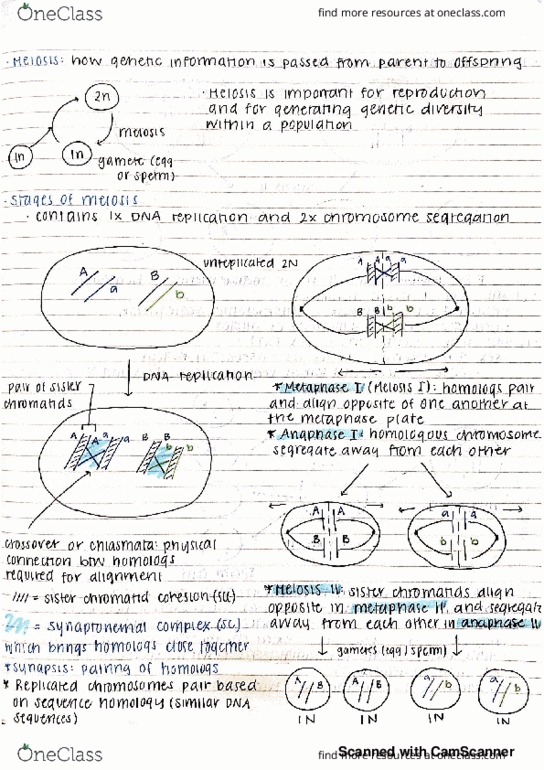 OneClass
find more resources at oneclass.com
· Meiosis: how genetic information is passed from parent to offspring
2n
meiosis
1n
1n
gamete (egg
or sperm)
· Meiosis is important for reproduction
and for generating genetic diversity
within a population
· Stages of meiosis
· contains 1x DNA replication and 2x chromosome segregation
unreplicated 2N
A
a
B
b
DNA replication
pair of sister
chromatids
A
A
a
a
B
B
b
b
crossover or chiasmata: physical
connection btw homologs
required for alignment
//// = sister chromatid cohesion (SCC)
= synaptonemal complex (SC)
which brings homologs close together
* synapsis: pairing of homologs
* Replicated chromosomes pair based
on sequence homology (similar DNA
sequences)
A A a a
B B b b
* Metaphase I (Meiosis I): homologs pair
and align opposite of one another at
the metaphase plate
* Anaphase I: homologous chromosome
segregate away from each other
A A
B B
a a
b b
* Meiosis II: sister chromatids align
opposite in metaphase II and segregate
away from each other in anaphase II
gametes (egg / sperm)
A B
A B
a b
a b
1N
1N
1N
1N
OneClass
find more resources at oneclass.com
Scanned with CamScanner